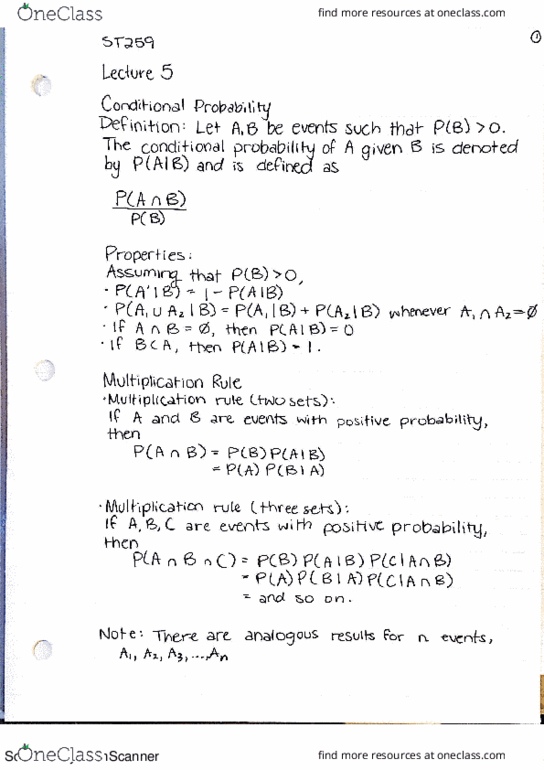 OneClass
find more resources at oneclass.com
ST259
1
Lecture 5
Conditional Probability
Definition: Let A,B be events such that P(B) > 0.
The conditional probability of A given B is denoted
by P(A|B) and is defined as
P(A ∩ B)
P(B)
Properties:
Assuming that P(B) > 0,
· P(A'|B) = 1 - P(A|B)
· P(A₁ ∪ A₂|B) = P(A₁|B) + P(A₂|B) whenever A₁ ∩ A₂ = ∅
· If A ∩ B = ∅, then P(A|B) = 0
· If B ⊂ A, then P(A|B) = 1.
Multiplication Rule
· Multiplication rule (two sets):
If A and B are events with positive probability,
then
P(A ∩ B) = P(B) P(A|B)
= P(A) P(B|A)
· Multiplication rule (three sets):
If A, B, C are events with positive probability,
then
P(A ∩ B ∩ C) = P(B) P(A|B) P(C|A∩B)
= P(A) P(B|A) P(C|A∩B)
= and so on.
Note: There are analogous results for n events,
A₁, A₂, A₃, ..., Aₙ
OneClass Scanner
find more resources at oneclass.com